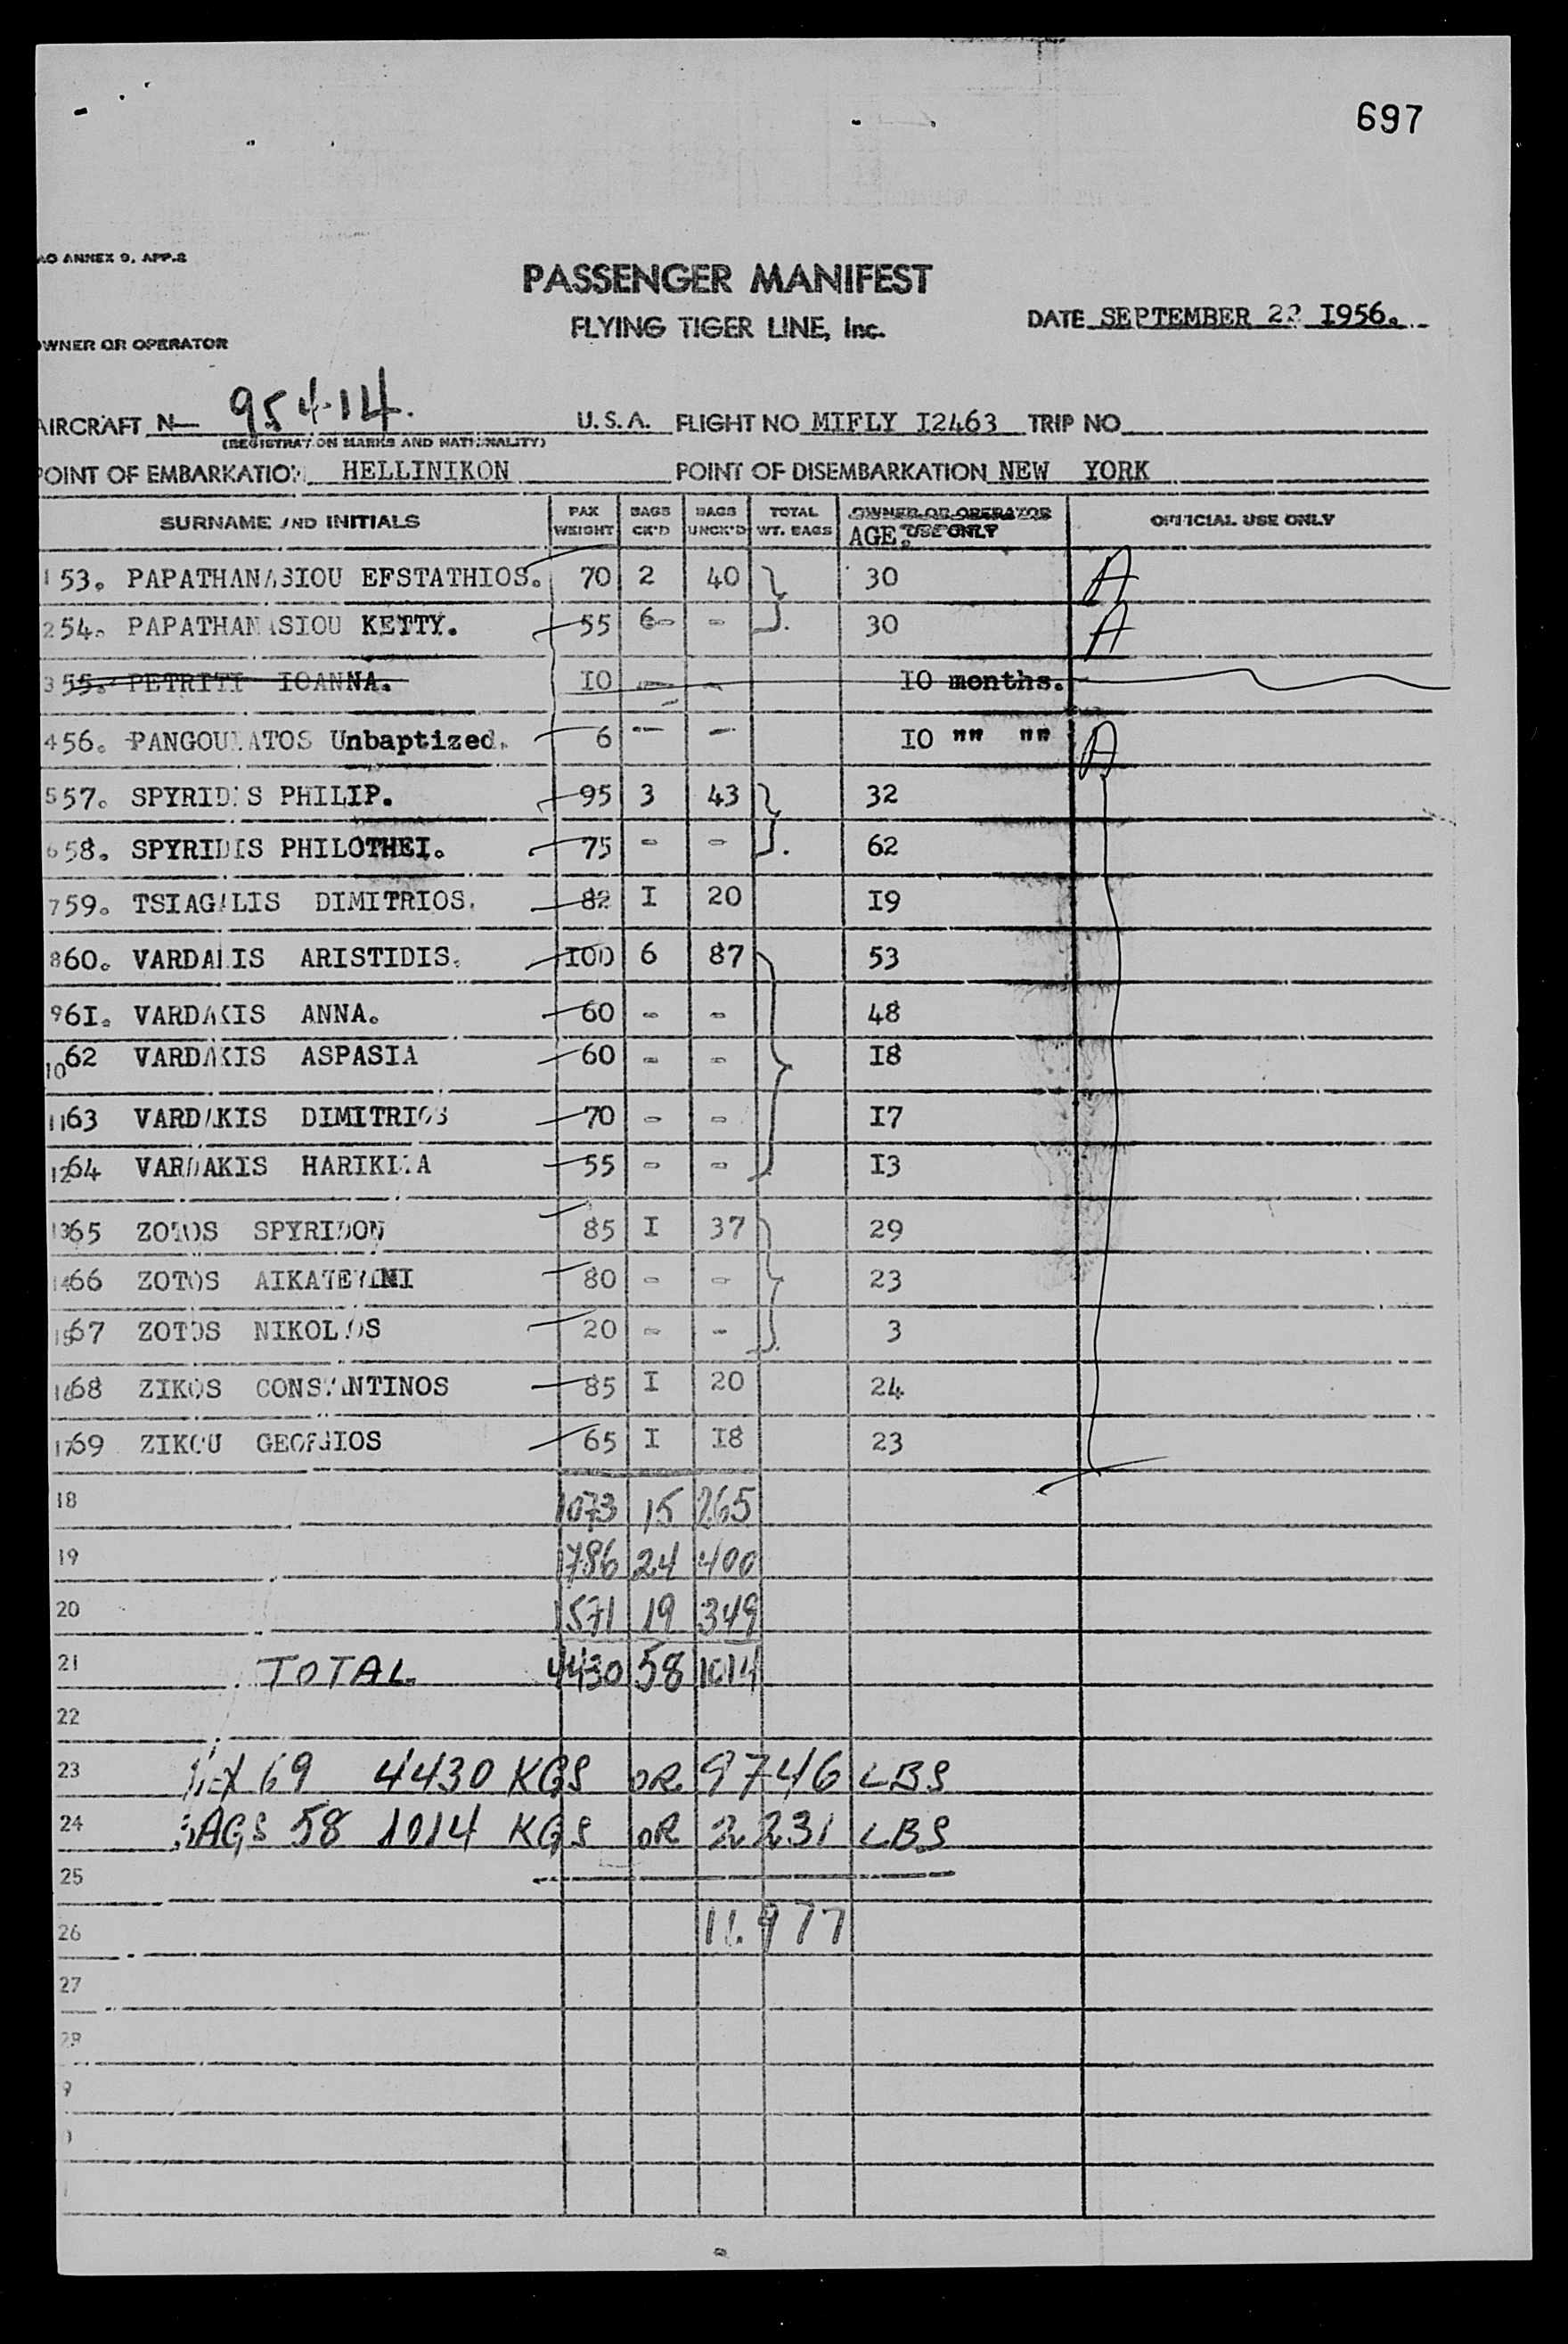 697
AO ANNEX 9, APP.2
PASSENGER MANIFEST
FLYING TIGER LINE, Inc.
DATE SEPTEMBER 22 I956.
OWNER OR OPERATOR
AIRCRAFT N— 954.14. U.S.A. FLIGHT NO MIFLY I2463 TRIP NO
(REGISTRATION MARKS AND NATIONALITY)
POINT OF EMBARKATION HELLINIKON POINT OF DISEMBARKATION NEW YORK
SURNAME AND INITIALS PAX WEIGHT BAGS CK'D BAGS UNCK'D TOTAL WT. BAGS OWNER OR OPERATOR USE ONLY AGE. OFFICIAL USE ONLY
1 53. PAPATHANASIOU EFSTATHIOS. 70 2 40 30 A
2 54. PAPATHANASIOU KETTY. 55 6- - 30 A
3 55. PETRITI IOANNA. IO - - IO months.
4 56. PANGOULATOS Unbaptized. 6 - - IO "" "" A
5 57. SPYRIDIS PHILIP. 95 3 43 32
6 58. SPYRIDIS PHILOTHEI. 75 - - 62
7 59. TSIAGALIS DIMITRIOS. 82 I 20 I9
8 60. VARDAKIS ARISTIDIS. IOO 6 87 53
9 6I. VARDAKIS ANNA. 60 - - 48
10 62 VARDAKIS ASPASIA 60 - - I8
11 63 VARDAKIS DIMITRIOS 70 - - I7
12 64 VARDAKIS HARIKLIA 55 - - I3
13 65 ZOTOS SPYRIDON 85 I 37 29
14 66 ZOTOS AIKATERINI 80 - - 23
15 67 ZOTOS NIKOLAOS 20 - - 3
16 68 ZIKOS CONSTANTINOS 85 I 20 24
17 69 ZIKOU GEORGIOS 65 I I8 23
18 1073 15 265
19 1786 24 400
20 1571 19 349
21 TOTAL 4430 58 1014
22
23 69 4430 KGS OR 9746 LBS
24 BAGS 58 1014 KGS OR 2231 LBS
25
26 11.977
27
28
9